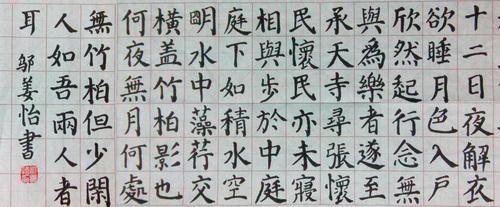 十二日夜解衣
欲睡月色入戶
欣然起行念無
與為樂者遂至
承天寺尋張懷
民懷民亦未寢
相與步於中庭
庭下如積水空
明水中藻荇交
橫蓋竹柏影也
何夜無月何處
無竹柏但少閑
人如吾兩人者
耳 鄒姜怡書